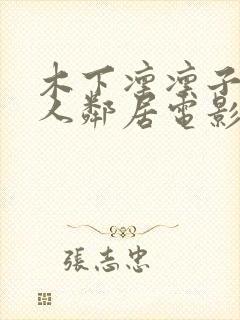 木下凜凜子
人鄰居電影
張志忠